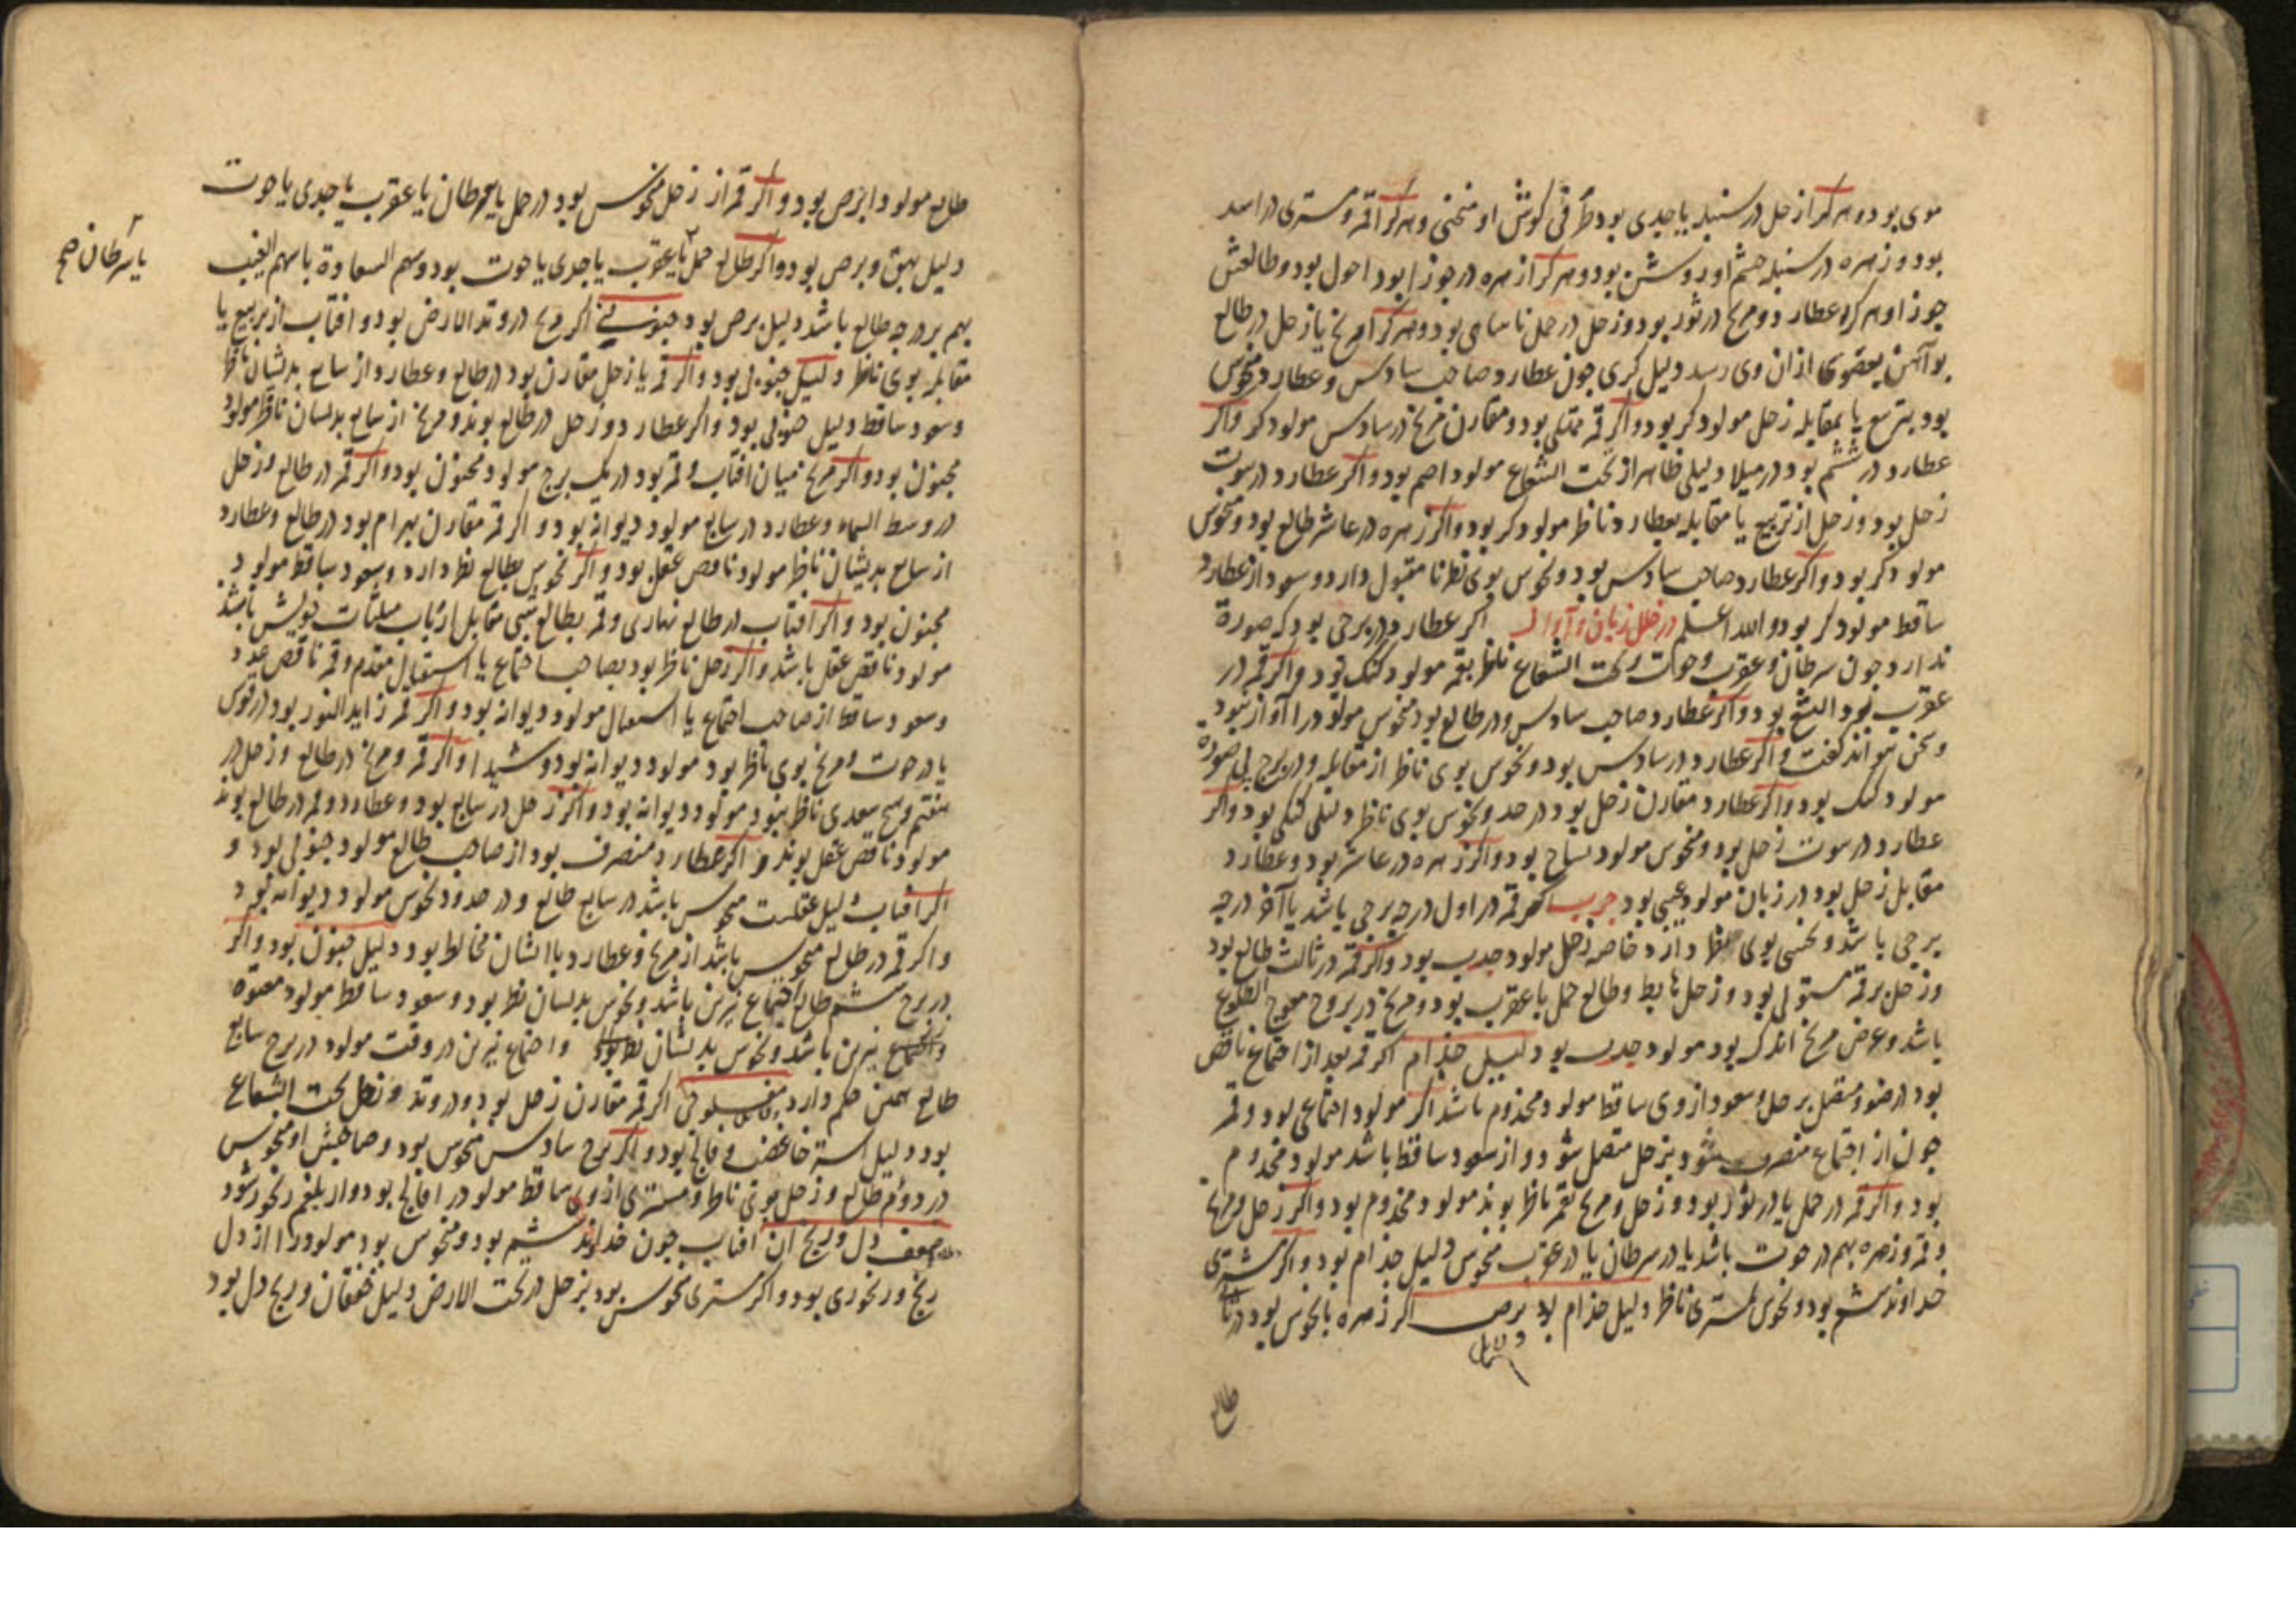 موی بود و هر کرا زحل در سنبله یا جدی بود طرفی کوش او منحنی و هر کرا قمر و مشتری در اسد
بود و زهره در سنبله چشم او روشن بود و هر کرا زهره در جوزا بود احول بود و طالعش
جوزا و هر کرا عطارد و مریخ در ثور بود و زحل در حمل بود و هر کرا مریخ یا زحل در طالع
از ان وی رسد دلیل کری چون عطارد صاحب سادس و عطارد منحوس
بود بتربیع یا بمقابله زحل مولود کر بود و اکر قمر ممتلی بود و مقارن مریخ در سادس مولود کر و اکر
عطارد در ششم بود در میلاد لیلی ظاهر از تحت الشعاع مولود اصم بود و اکر عطارد در بیت
زحل بود و زحل از تربیع یا مقابله بعطارد ناظر مولود کر بود و اکر زهره در عاشر طالع بود و منحوس
مولود کر بود و اکر عطارد صاحب سادس بود و نحوس بوی نظر نا مقبول دارد و سعود از عطارد
ساقط مولود کر بود والله اعلم در خلل زبان و آواز اکر عطارد در برجی بود که صورة
ندارد چون سرطان و عقرب و حوت و تحت الشعاع ناظر بقمر مولود کنک بود و اکر قمر در
عقرب بود الثغ بود و اکر عطارد صاحب سادس و در طالع بود منحوس مولود را آواز نبود
و سخن نتواند کفت و اکر عطارد در سادس بود و نحوس بوی ناظر از مقابله و در برج بی صورة
مولود کنک بود و اکر عطارد مقارن زحل بود در حد و نحوس بوی ناظر دلیل کنکی بود و اکر
عطارد در بیت زحل بود و منحوس مولود بود و اکر زهره در عاشر بود و عطارد
مقابل زحل بود در زبان مولود عیبی بود حرب اکر قمر در اول درجه برجی باشد یا آخر درجه
برجی باشد و نحسی بوی نظر دارد خاصه زحل مولود حدب بود و اکر قمر در ثالث طالع بود
و زحل بر قمر مستولی بود و زحل هابط و طالع حمل یا عقرب بود و مریخ در بروج معوج الطلوع
باشد و عرض مریخ اندک بود مولود حدب بود دلیل جذام اکر قمر بعد از اجتماع ناقص
بود در ضو و متصل بزحل و سعود از وی ساقط مولود مجذوم باشد اکر مولود اجتماعی بود و قمر
چون از اجتماع منصرف شود بزحل متصل شود و از سعود ساقط باشد مولود مجذوم
بود و اکر قمر در حمل یا در ثور بود و زحل و مریخ بقمر ناظر بوند مولود مجذوم بود و اکر زحل و مریخ
و قمر و زهره بهم در حوت باشد یا در سرطان یا در عقرب منحوس دلیل جذام بود و اکر مشتری
خداوند ششم بود و نحوس بمشتری ناظر دلیل جذام بود برص اکر زهره با نحوس بود در
طالع
طالع مولود ابرص بود و اکر قمر از زحل منحوس بود در حمل یا سرطان یا عقرب یا جدی یا حوت
دلیل بهق و برص بود و اکر طالع حمل یا عقرب یا جدی یا حوت بود و سهم السعادة با سهم الغیب
یا سرطان صح
بهم بر درجه طالع باشد دلیل برص بود جنونی اکر مریخ در وتد الارض بود و افتاب از تربیع یا
مقابله بوی ناظر دلیل جنونی بود و اکر قمر با زحل مقارن بود در طالع و عطارد از سابع بدیشان ناظر
و سعود ساقط دلیل جنونی بود و اکر عطارد و زحل در طالع بوند و مریخ از سابع بدیشان ناظر مولود
مجنون بود و اکر مریخ میان افتاب و قمر بود در یک برج مولود مجنون بود و اکر قمر در طالع و زحل
در وسط السماء و عطارد در سابع مولود دیوانه بود و اکر قمر مقارن بهرام بود در طالع و عطارد
از سابع بدیشان ناظر مولود ناقص عقل بود و اکر نحوس بطالع نظر دارد و سعود ساقط مولود
مجنون بود و اکر افتاب در طالع نهاری و قمر بطالع شبی مقابل ارباب مثلثات خویش باشد
مولود ناقص عقل باشد و اکر زحل ناظر بود بصاحب اجتماع یا استقبال مقدم و قمر ناقص عدد
و سعود ساقط از صاحب اجتماع یا استقبال مولود دیوانه بود و اکر قمر زاید النور بود در قوس
یا در حوت و مریخ بوی ناظر بود مولود دیوانه بود و شیدا و اکر قمر و مریخ در طالع و زحل در
هفتم و هیچ سعدی ناظر نبود مولود دیوانه بود و اکر زحل در سابع بود و عطارد و قمر در طالع بوند
مولود ناقص عقل بود و اکر عطارد منصرف بود از صاحب طالع مولود جنونی بود و
اکر افتاب دلیل عقلست منحوس باشد در سابع طالع و در حدود نحوس مولود دیوانه بود
و اکر قمر در طالع منحوس باشد از مریخ و عطارد با ایشان مخالط بود دلیل جنون بود و اکر
در برج ششم طالع اجتماع نیرین باشد و نحوس بدیشان نظر بود و سعود ساقط مولود معتوه
و اجتماع نیرین باشد و نحوس بدیشان و اجتماع نیرین در وقت مولود در برج سابع
طالع همین حکم دارد مفلوجی اکر قمر مقارن زحل بود و در وتد و زحل تحت الشعاع
بود دلیل و فالج بود و اکر برج سادس منحوس بود و صاحبش او منحوس
در دوم طالع و زحل بوی ناظر و مشتری از وی ساقط مولود را فالج بود و از بلغم رنجور شود
ضعف دل و رنج ان افتاب چون خداوند ششم بود و منحوس بود مولود را از دل
رنج و رنجوری بود و اکر مشتری منحوس بود بزحل در تحت الارض دلیل خفقان و رنج دل بود